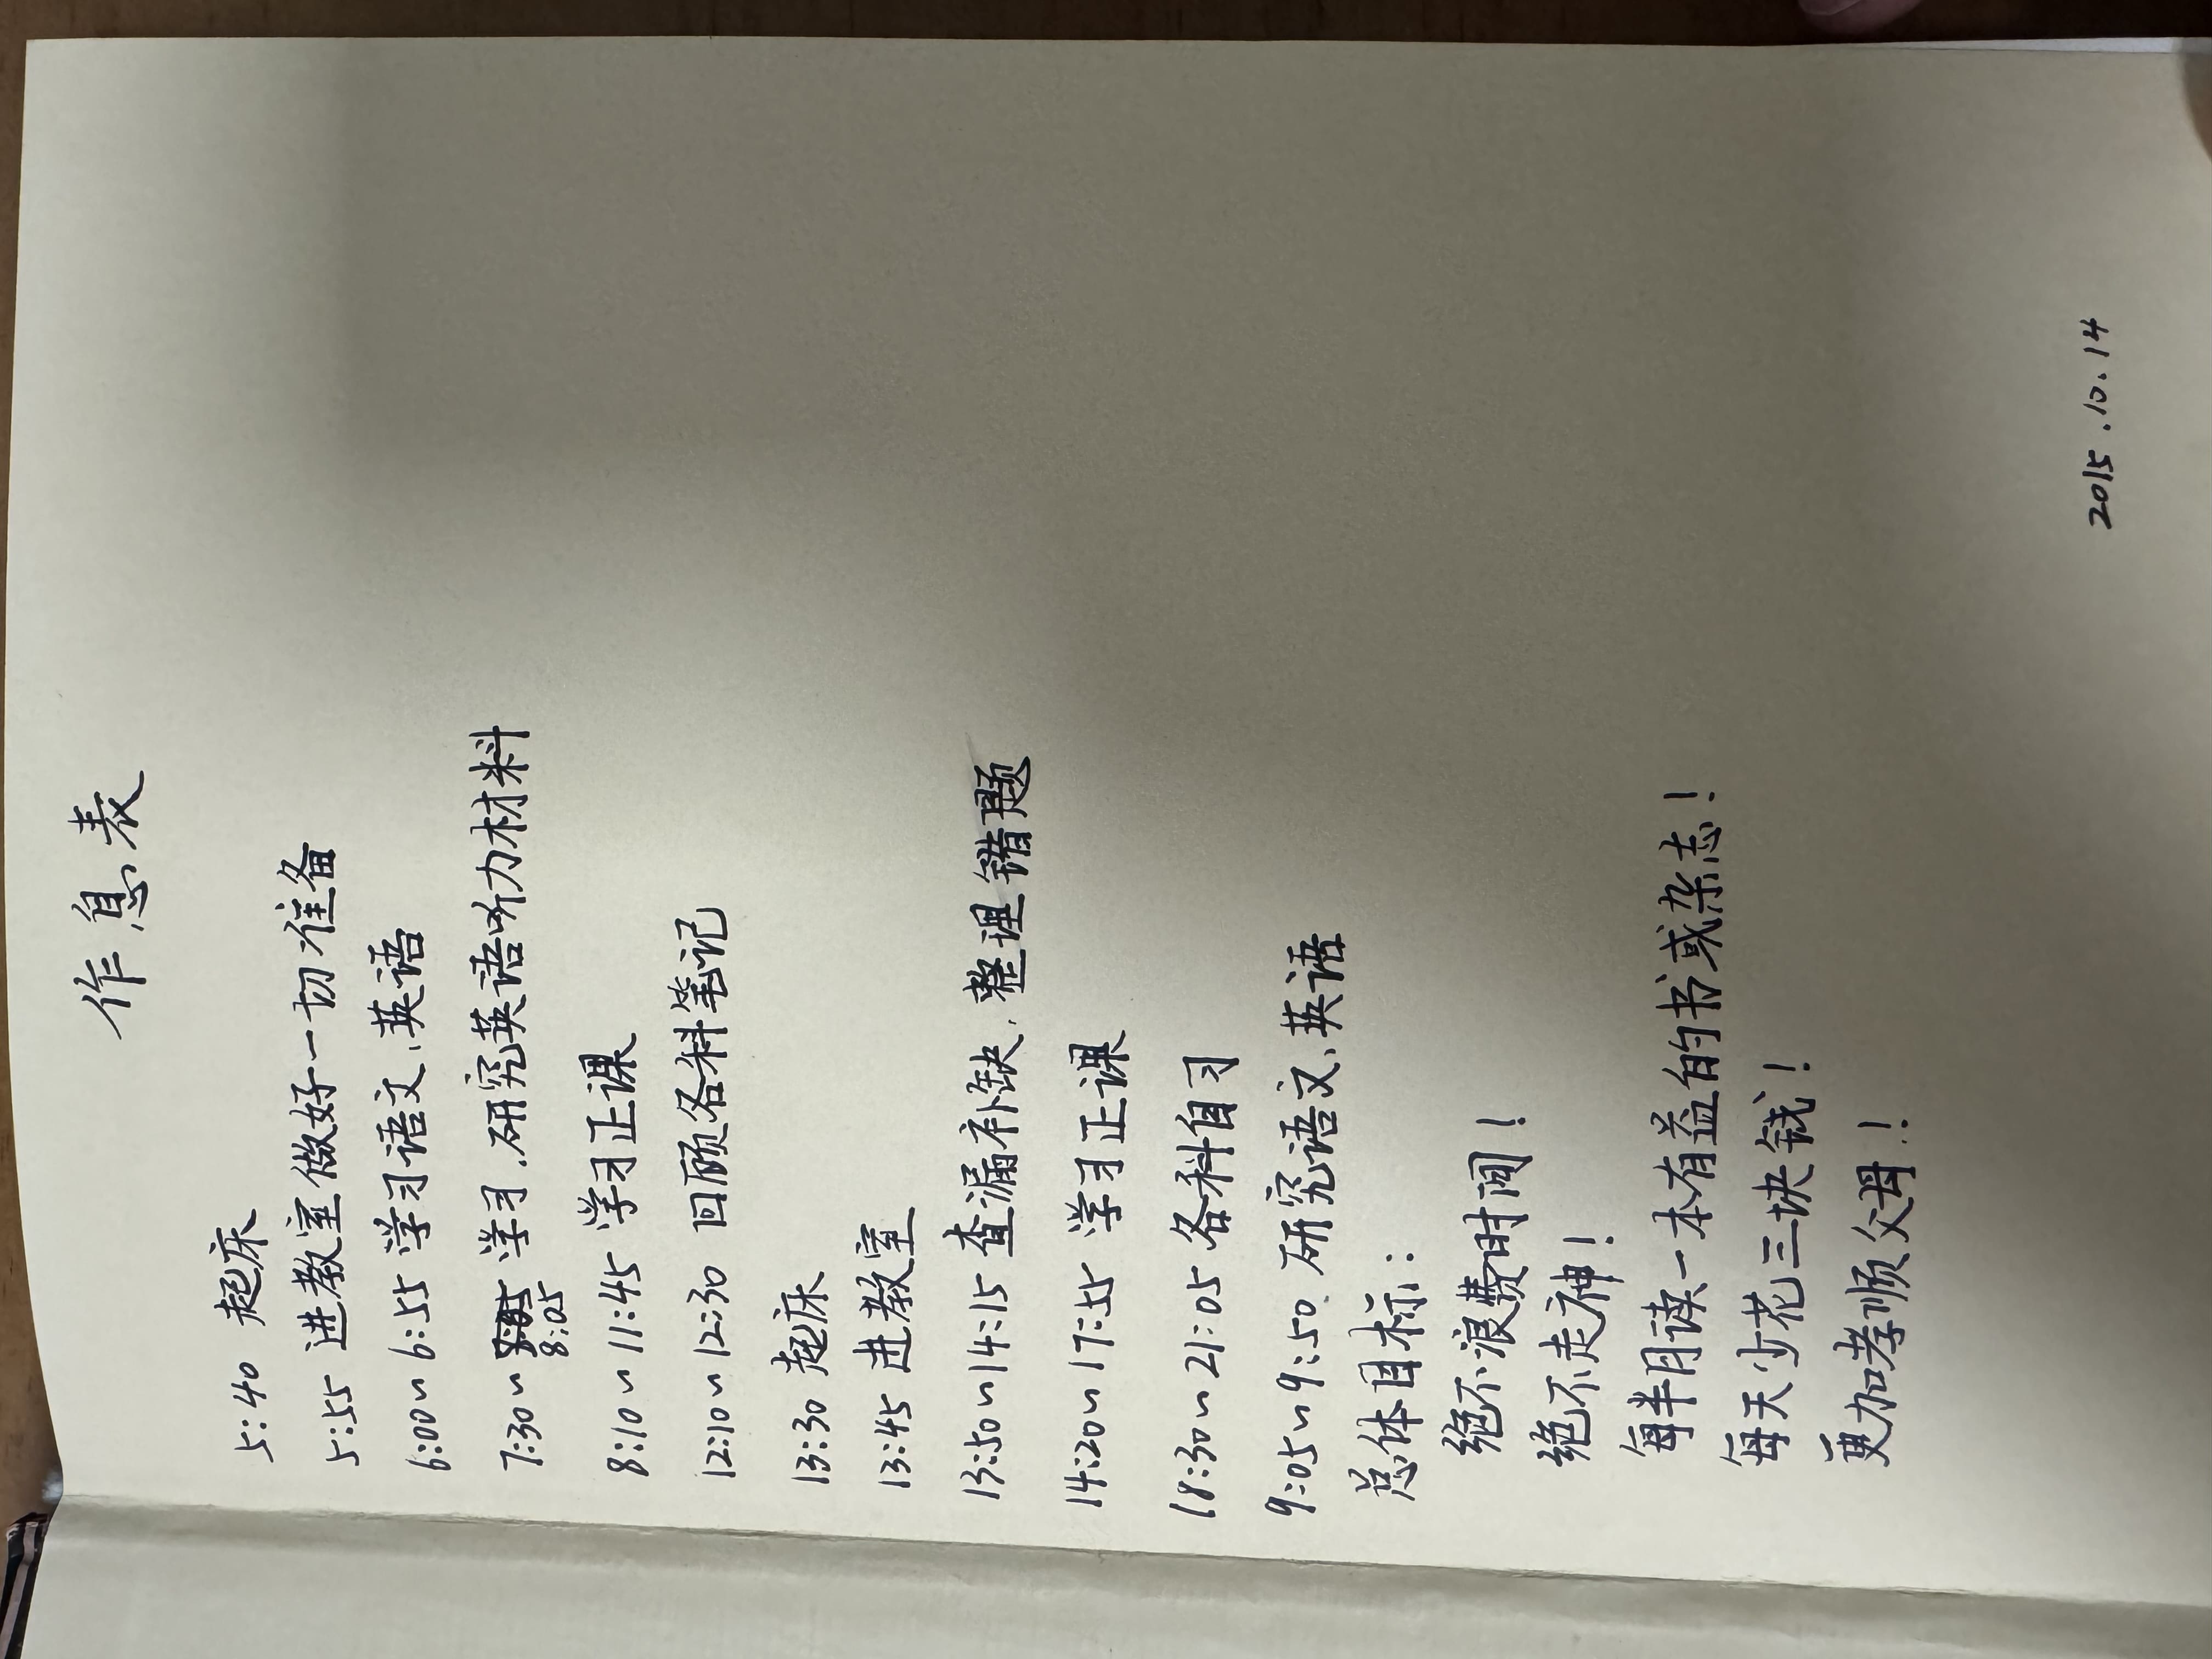 作息表
5:40 起床
5:55 进教室做好一切准备
6:00~6:55 学习语文、英语
7:30~8:05 学习、研究英语听力材料
8:10~11:45 学习正课
12:10~12:30 回顾各科笔记
13:30 起床
13:45 进教室
13:50~14:15 查漏补缺、整理错题
14:20~17:55 学习正课
18:30~21:05 各科自习
9:05~9:50、研究语文、英语
总体目标:
绝不浪费时间!
绝不走神!
每半月读一本有益的书或杂志!
每天少花三块钱!
更加孝顺父母!
2015.10.14